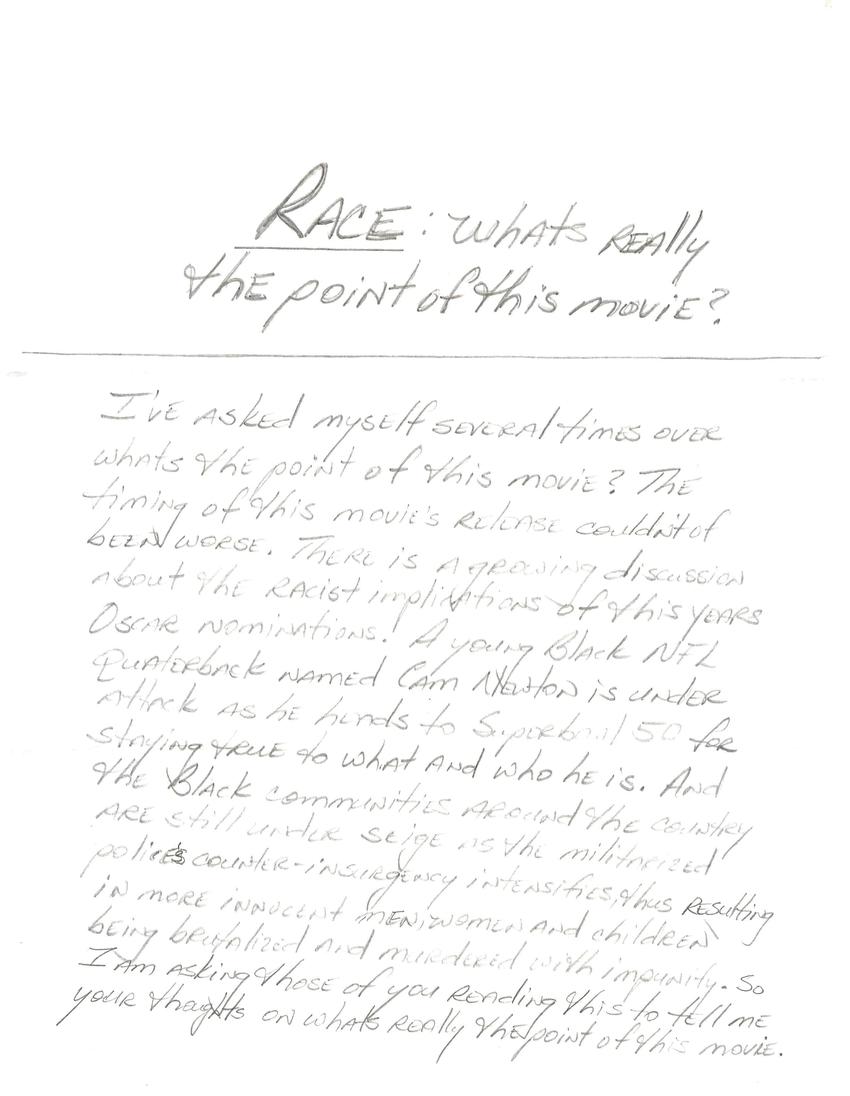 RACE: whats REAlly
thE point of this moviE?
I'vE ASkEd mysElf SEVERAl timEs OVER
whats the point of this moviE? ThE
timing of this moviE's RElEASE couldn't of
bEEN WORSE. ThERE is A gROwing discussion
About thE RAcist implications of this yEARS
OscAR nominAtions! A young BlAck NFL
QuatERbAck NAMEd CAm NEwton is undER
AttAck AS hE hEAds to SupERbowl 50 foR
stAying tRUE to whAt And who hE is. And
thE BlAck communitiEs AROund thE countRy
ARE still undER seigE As thE militARizEd
policE's countER-insuRgEncy intEnsifiEs, thus REsulting
in moRE innocEnt mEN, womEn And childREN
bEing bRutAlizEd And muRdEREd with impunity. So
I Am Asking thosE of you REAding this to tEll mE
youR thoughts on whAts REAlly thE point of this moviE.